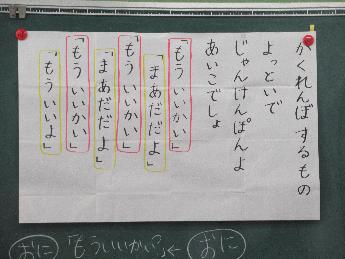 かくれんぼ するもの
よっといで
じゃんけんぽんよ
あいこでしょ
「もう いいかい」
「まあだだよ」
「もう いいかい」
「まあだだよ」
「もう いいかい」
「もう いいよ」
おに「もういいかい?」←おに